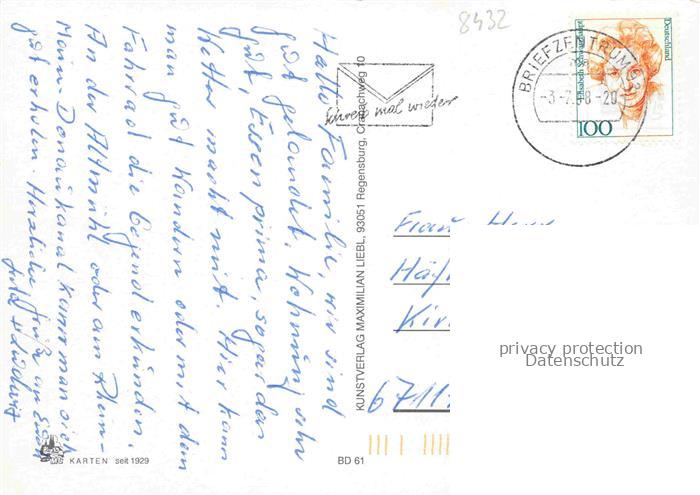 Hallo Familie, wir sind
gut gelandet. Wohnung sehr
gut, Essen prima, sogar das
Wetter macht mit. Hier kann
man gut wandern oder mit dem
Fahrrad die Gegend erkunden.
An der Altmühl oder am Rhein-
Main-Donaukanal kann man sich
gut erholen. Herzliche Grüße an Euch
KARTEN seit 1929
BD 61
KUNSTVERLAG MAXIMILIAN LIEBL, 93051 Regensburg, Cranachweg 10
Schreib mal wieder
8432
BRIEFZENTRUM
-3-7.98-20
Elisabeth Schwarzhaupt
Deutschland
100
Frau
67112
privacy protection
Datenschutz